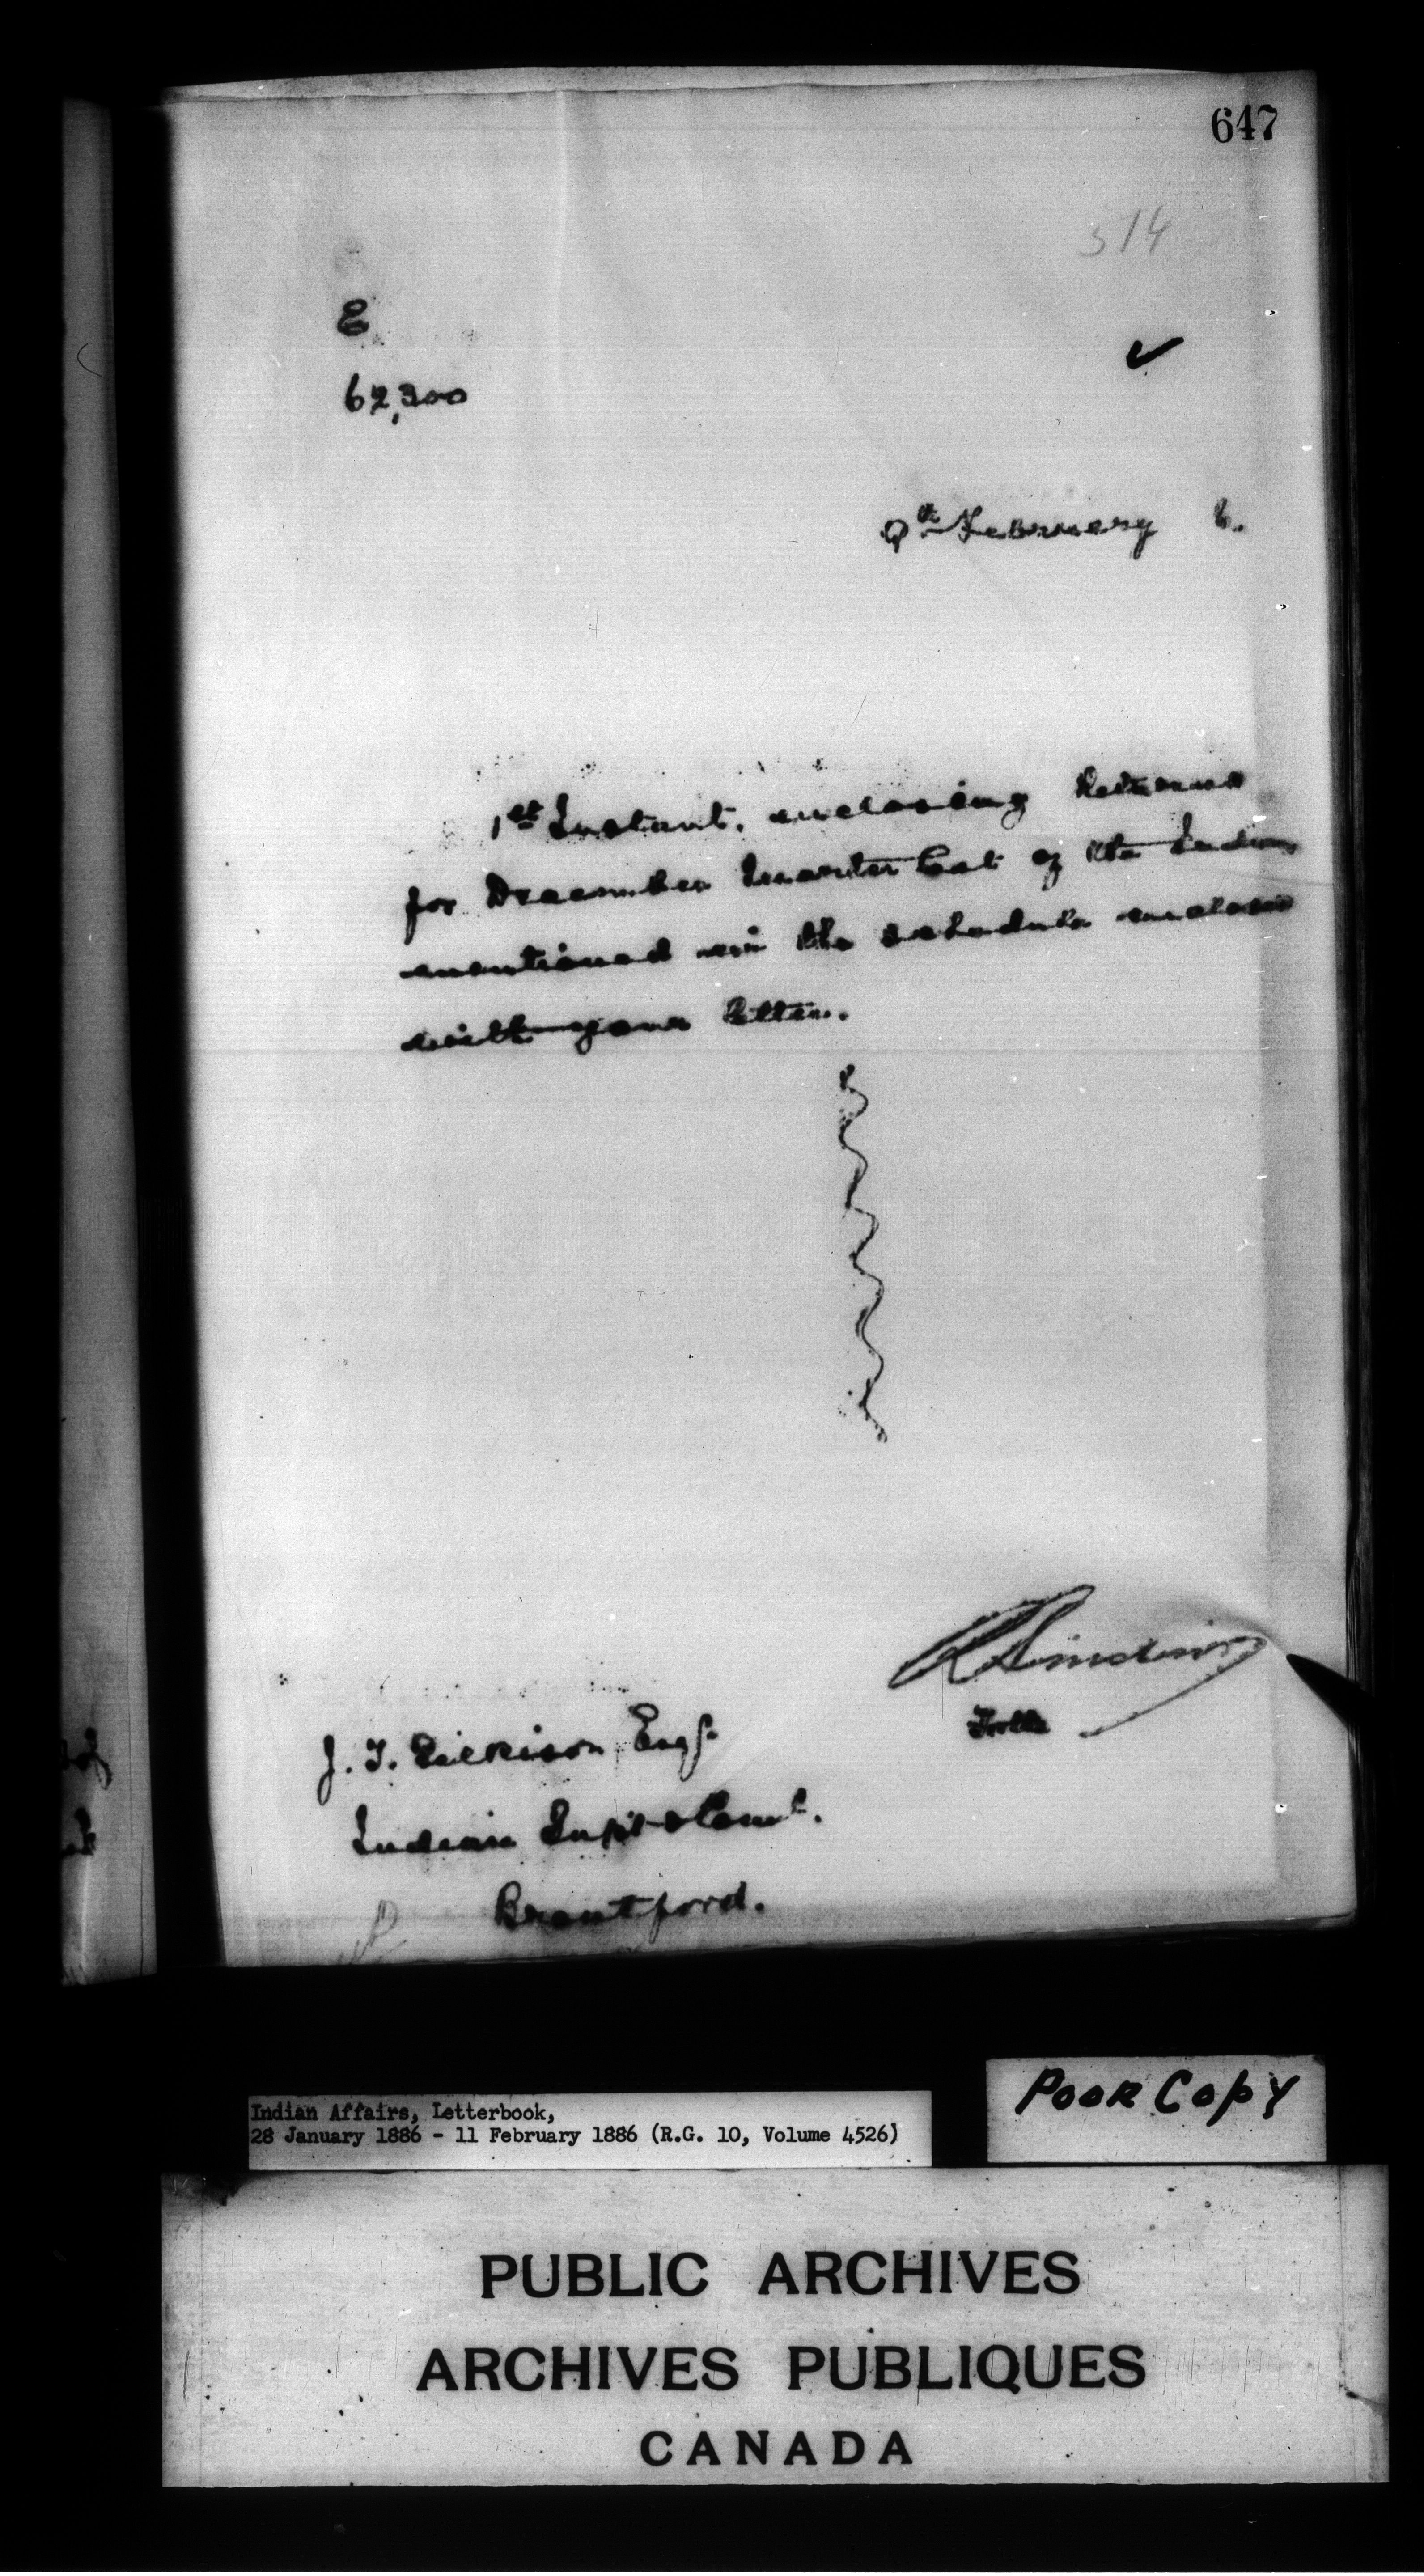 647
514
E
62,300
9th February 6.
1st Instant, enclosing Returns
for December Quarter of the Indians
mentioned in the schedule enclosed
with your letter.
J. T. Gilkison, Esqr.
Indian Supt & Comr.
Brantford.
Poor Copy
Indian Affairs, Letterbook,
28 January 1886 - 11 February 1886 (R.G. 10, Volume 4526)
PUBLIC ARCHIVES
ARCHIVES PUBLIQUES
CANADA